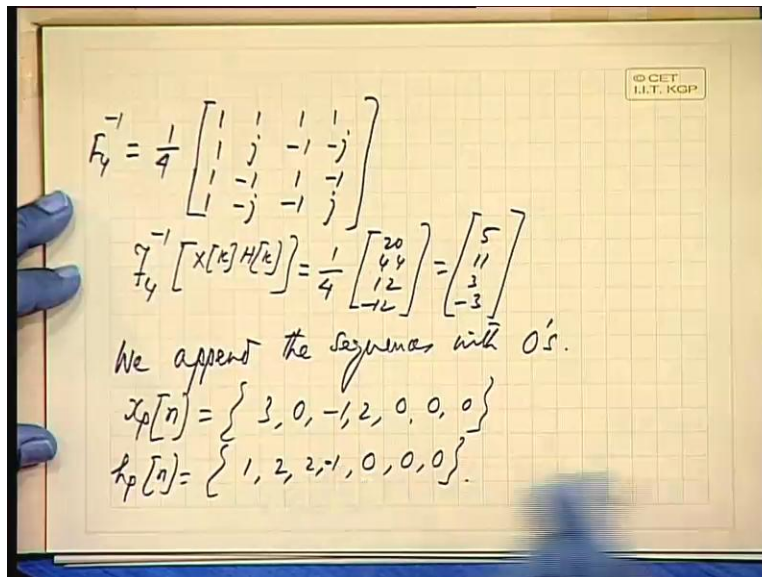 © CET
I.I.T. KGP
F₄⁻¹ = 1/4 [1 1 1 1; 1 j -1 -j; 1 -1 1 -1; 1 -j -1 j]
F₄⁻¹ [X[k] H[k]] = 1/4 [20; 44; 12; -12] = [5; 11; 3; -3]
We append the sequences with 0's.
xₚ[n] = { 3, 0, -1, 2, 0, 0, 0 }
hₚ[n] = { 1, 2, 2, -1, 0, 0, 0 }.